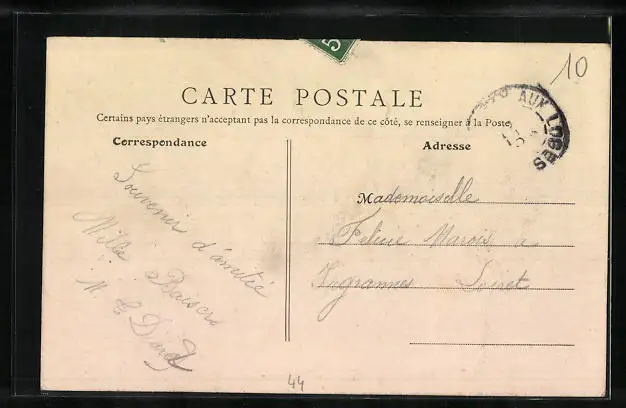 5
10
CARTE POSTALE
Certains pays étrangers n'acceptant pas la correspondance de ce côté, se renseigner à la Poste
Correspondance
Adresse
AUX LOGES
Souvenir d'amitié
Mille Baisers
M
Mademoiselle
Felicie Marois a
Ingrannes Loiret
44